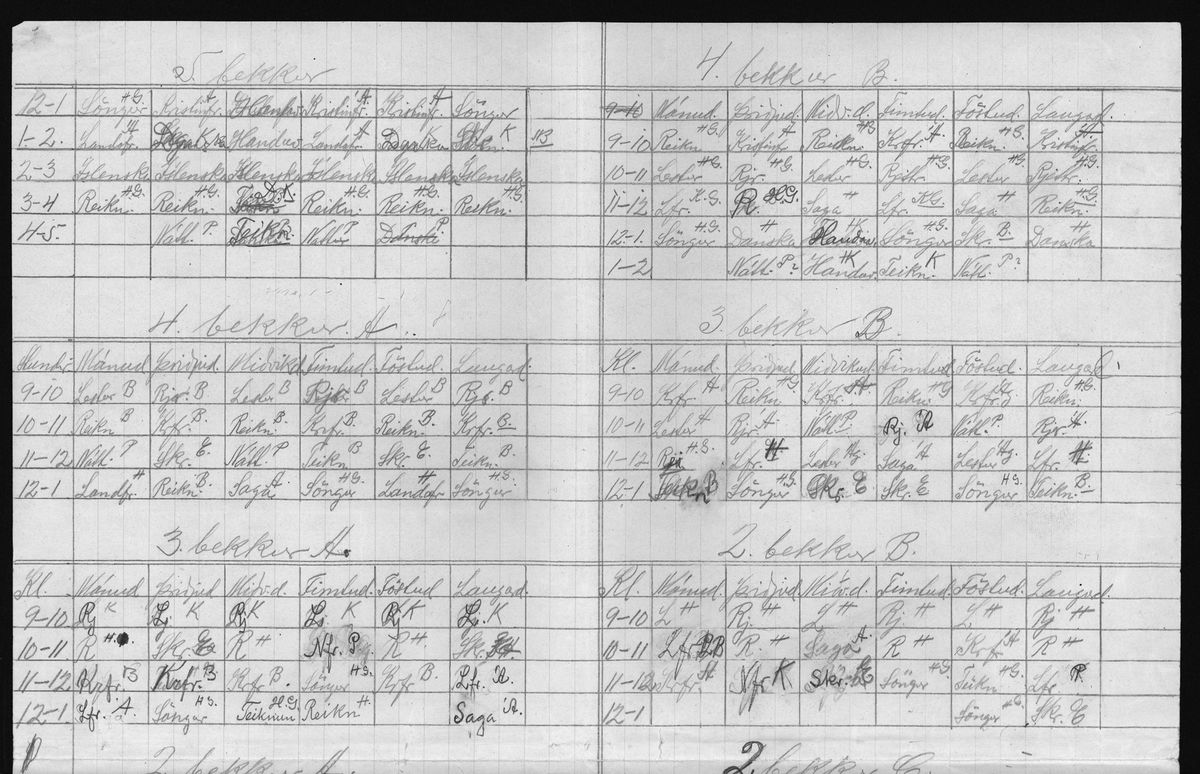 5. bekkur
12-1 Söngur H.G. Kristinfr. A Handav. Kristinfr. A Kristinfr. A Söngur
1-2. Landafr. Handav. Landafr. A Danska K
2-3 Íslenska Íslenska Íslenska Íslenska Íslenska Íslenska
3-4 Reikn. H.G. Reikn. H.G. Reikn. H.G. Reikn. H.G. Reikn. H.G.
4-5. Nátt. P Teikn. Nattur P Danska
4. bekkur B.
9-10 Mánud. Þriðjud. Miðv.d. Fimtud. Föstud. Laugad.
9-10 Reikn. H.G. Kristinfr. A Reikn. H.G. Krfr. A Reikn. H.G. Kristinfr. A
10-11 Lestur H.G. Rjr. H.G. Lestur H.G. Rjetr. H.G. Lestur H.G. Rjetr. H.G.
11-12 Lfr. H.G. R. H.G. Saga H Lfr. H.G. Saga H Reikn. H.G.
12-1. Söngur H.G. Danska H Handav. Söngur H.G. Skr. B. Danska H
1-2 Nátt. P? Handav. HK Teikn. K Nátt. P?
4. bekkur A.
Mánud. Þriðjud. Miðvikud. Fimtud. Föstud. Laugad.
9-10 Lestur B Rjr. B Lestur B Rjetr. B Lestur B Rjr. B
10-11 Reikn B Krfr. B. Reikn. B. Krfr. B Reikn. B. Krfr. B.
11-12 Nátt. P Skr. E Nátt. P Teikn B Skr. E. Teikn. B
12-1 Landfr. H Reikn. B. Saga A Söngur H.G. Landafr H Söngur H.G.
3. bekkur B.
Kl. Mánud. Þriðjud. Miðvikud. Fimtud. Föstud. Laugad.
9-10 Krfr. A Reikn. H.G. Krfr. A Reikn. G Krfr. Reikn. H.G.
10-11 Lestur A Rjr. A Nátt. P Rj. A Nátt. P. Rjr. A
11-12 H.G. Lfr. H Lestur Saga A Lestur Lfr. H
12-1 Teikn B Söngur H.G. Skr. E Skr. E Söngur H.G. Teikn. B.
3. bekkur A.
Kl. Mánud Þriðjud Miðv.d. Fimtud. Föstud Laugad.
9-10 Rj K L. K Rj K L. K Rj K L. K
10-11 R H. Skr. R H Nfr. P R H Skr.
11-12 Krfr. B Krfr. B Krfr B. Söngur H.G. Krfr B. Lfr. A.
12-1 Lfr. A Söngur H.G. Teiknun H.G. Reikn H Saga A.
2. bekkur B.
Kl. Mánud Þriðjud Miðv.d. Fimtud. Föstud. Laugad.
9-10 L H Rj H L H Rj H L H Rj H
10-11 Lfr B R H Saga A. R H Krfr. A R H
11-12 Krfr. A Nfr K Skr. E Söngur H.G Teikn H.G. Lfr P.
12-1 Söngur H.G. Skr. E
2. bekkur A.
2. bekkur C.